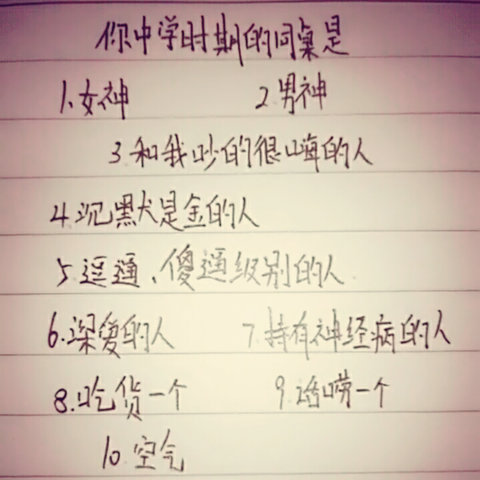 你中学时期的同桌是
1.女神 2.男神
3.和我吵的很嗨的人
4.沉默是金的人
5.逗逼、傻逼级别的人
6.深爱的人 7.持有神经病的人
8.吃货一个 9.话唠一个
10.空气